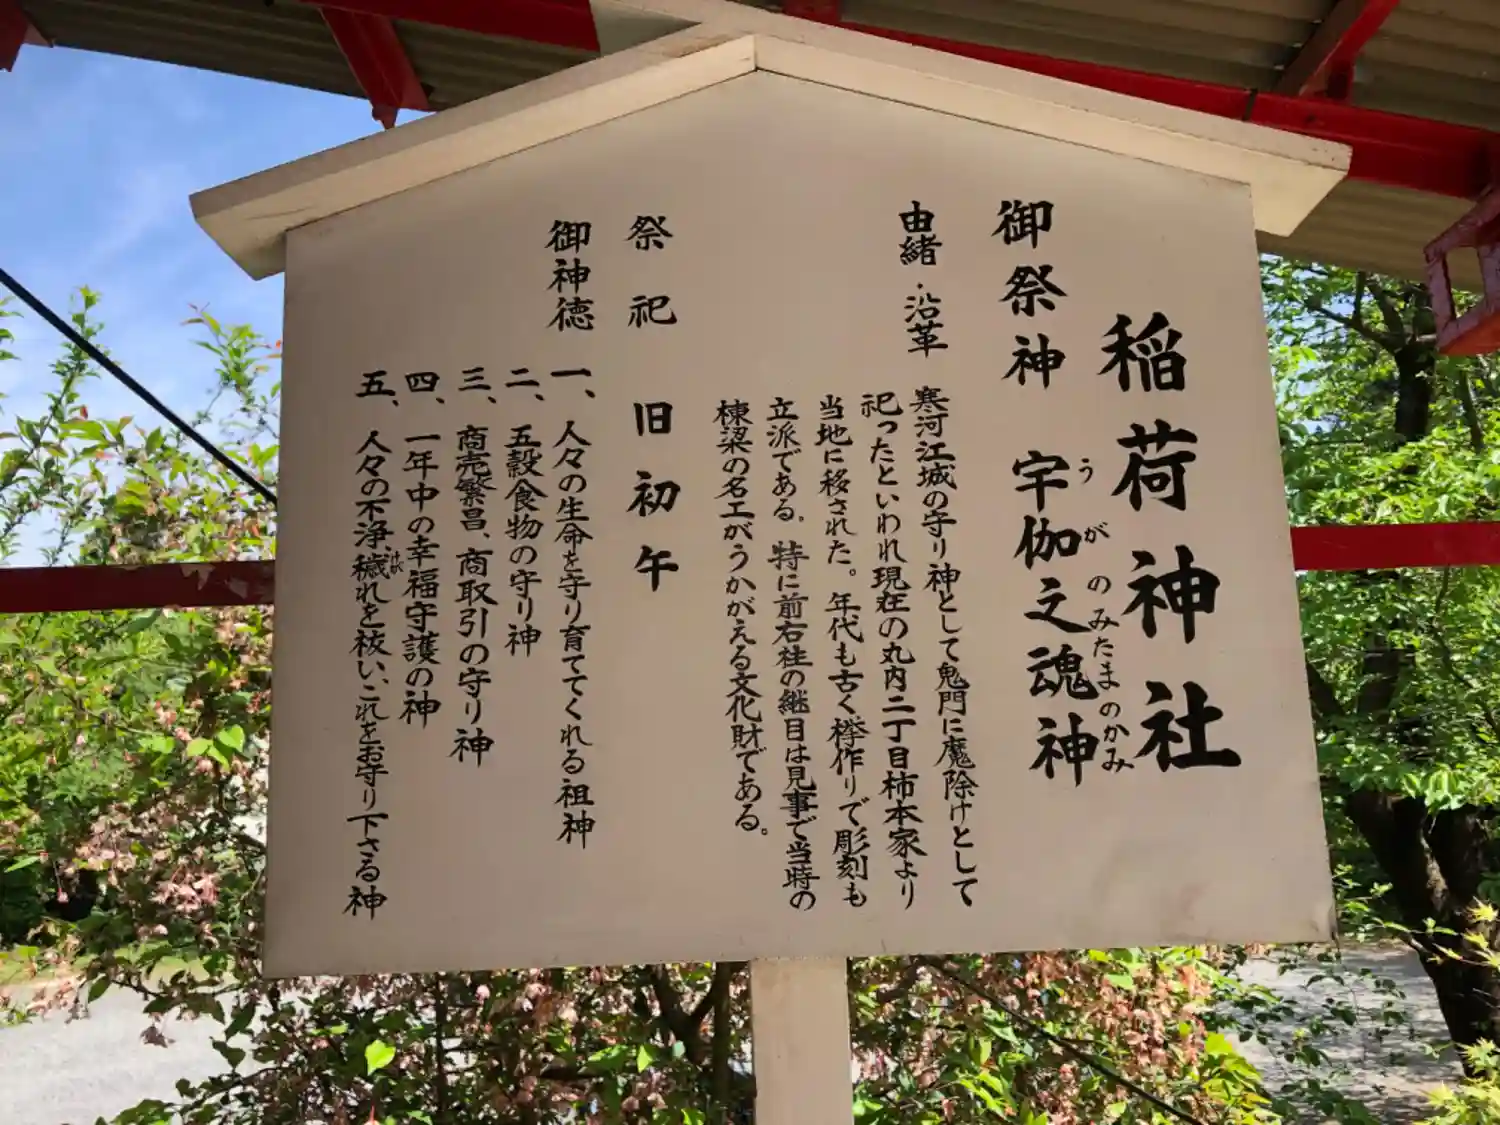 稲荷神社
御祭神 宇伽之魂神
うが のみたまのかみ
由緒・沿革
寒河江城の守り神として鬼門に魔除けとして
祀ったといわれ現在の丸内二丁目柿本家より
当地に移された。年代も古く欅作りで彫刻も
立派である。特に前右柱の継目は見事で当時の
棟梁の名工がうかがえる文化財である。
祭祀 旧初午
御神徳
一、人々の生命を守り育ててくれる祖神
二、五穀食物の守り神
三、商売繁昌、商取引の守り神
四、一年中の幸福守護の神
五、人々の不浄穢れを祓い、これをお守り下さる神
けが